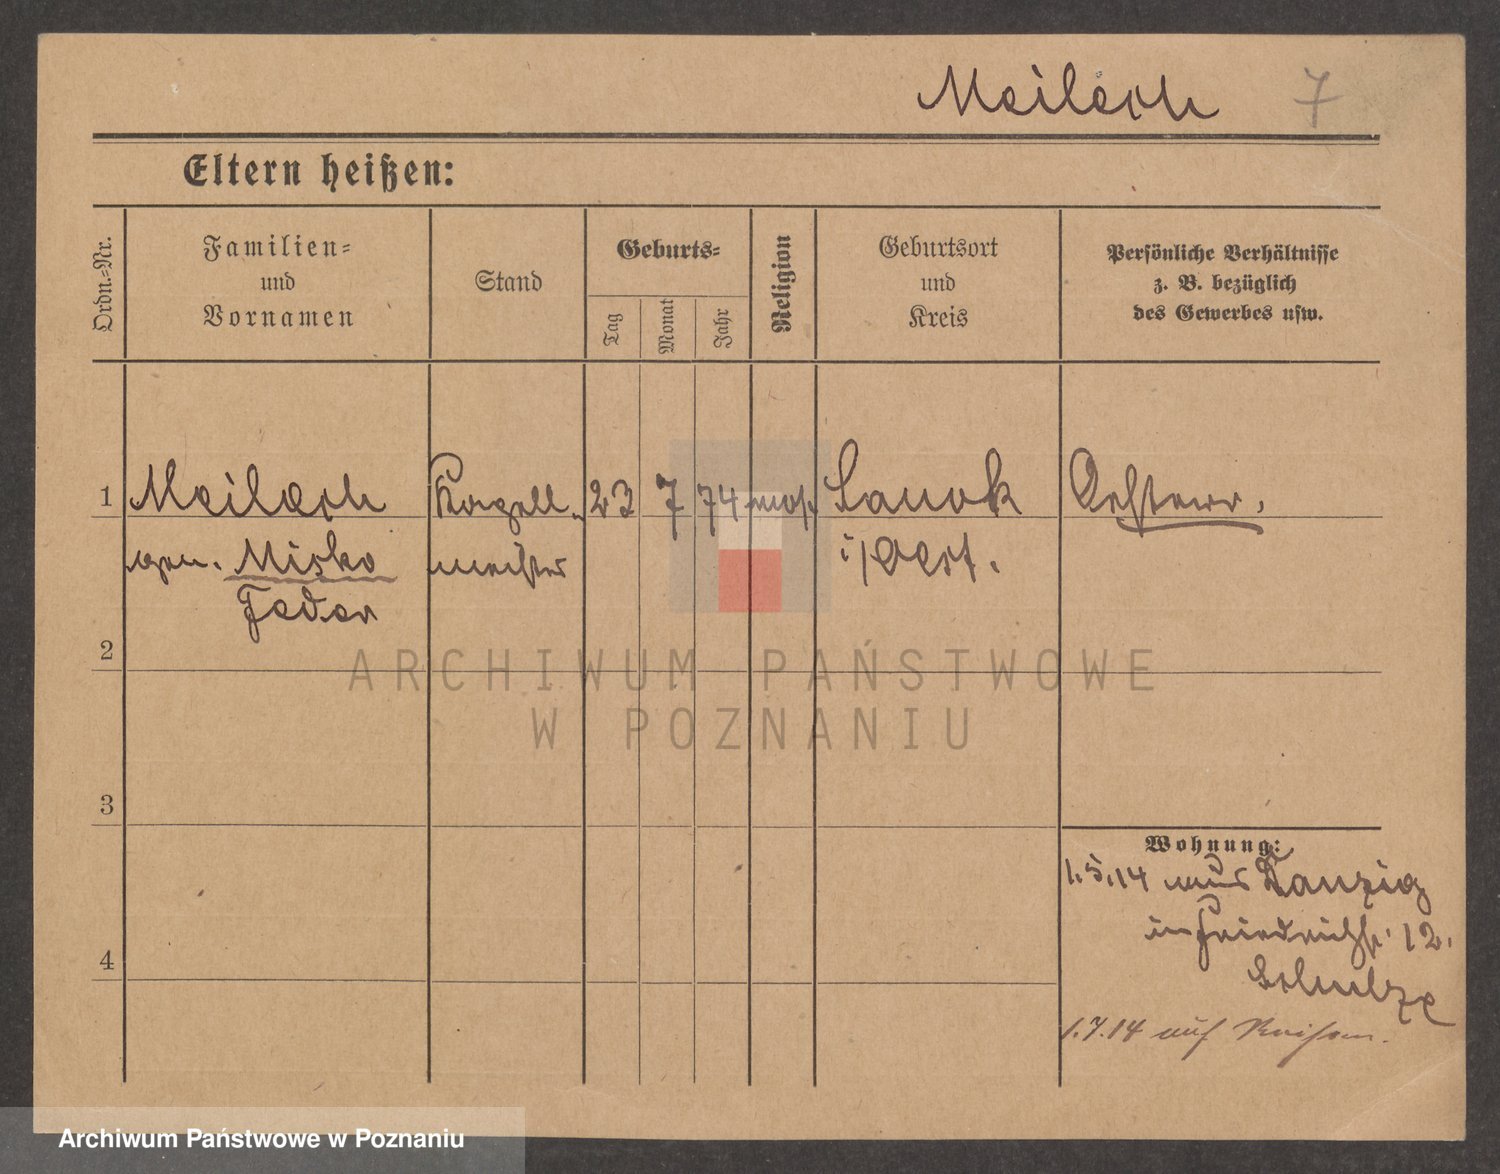 Meilech 7
Eltern heißen:
Ordn.-Nr.
Familien-
und
Vornamen
Stand
Geburts-
Tag
Monat
Jahr
Religion
Geburtsort
und
Kreis
Persönliche Verhältnisse
z. B. bezüglich
des Gewerbes usw.
1 Meilech Kapell- 23 7 74 mos. Sanok Oesterr.
gen. Misko meister i/Oest.
Fedor
2
ARCHIWUM PAŃSTWOWE
W POZNANIU
3
Wohnung:
1.5.14 aus Danzig
in Friedrichstr. 12.
Schulze
4
1.7.14 auf Reisen.
Archiwum Państwowe w Poznaniu